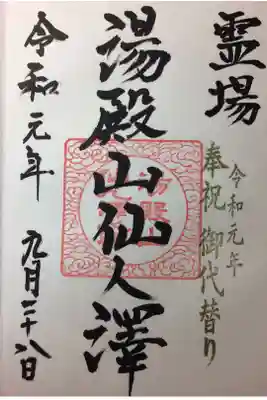 霊場
奉祝御代替り
令和元年
湯殿山仙人澤
令和元年
九月二十八日